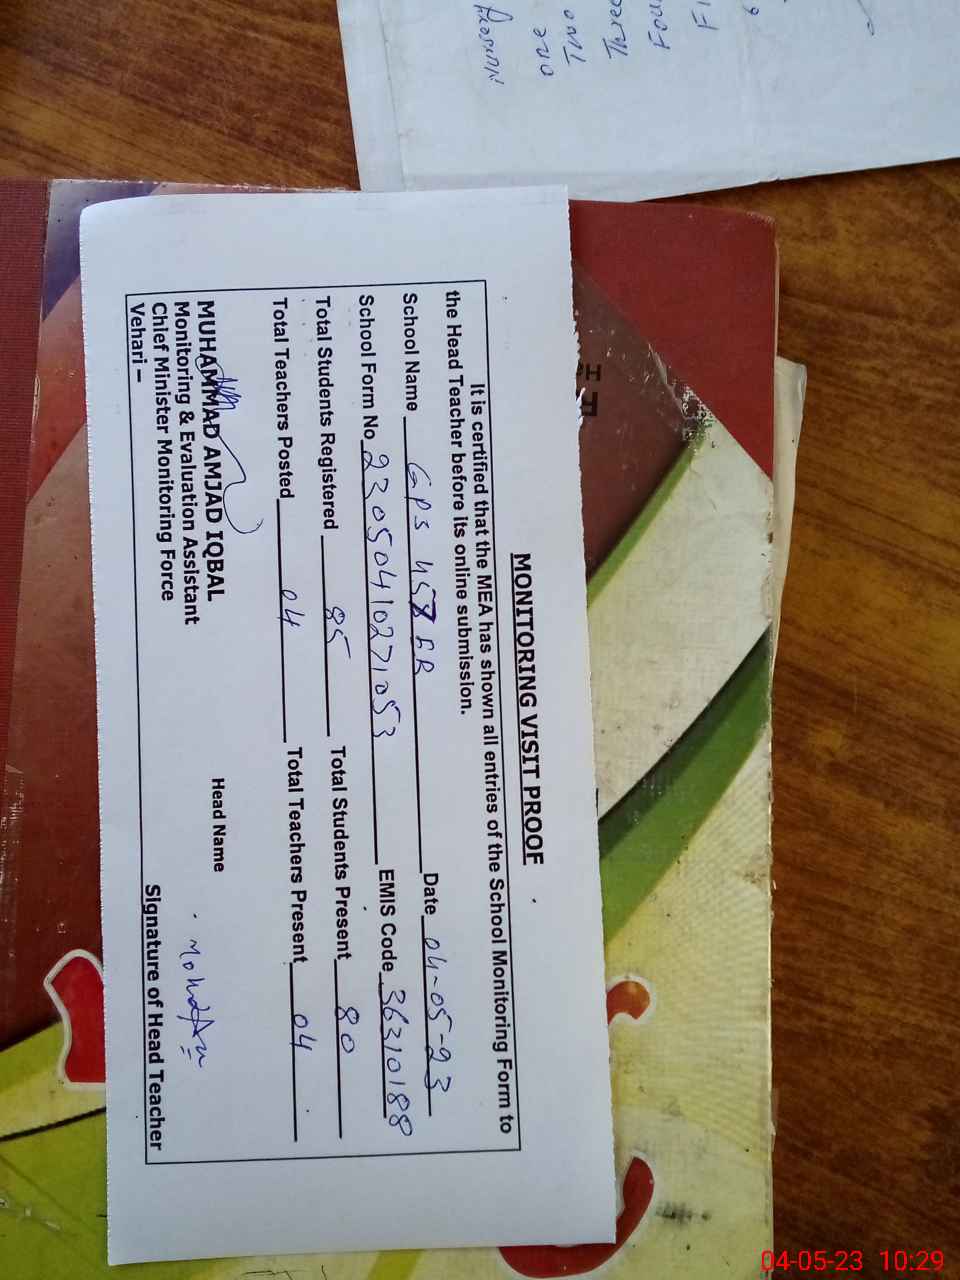 MONITORING VISIT PROOF
It is certified that the MEA has shown all entries of the School Monitoring Form to
the Head Teacher before its online submission.
School Name GPS 457 EB Date 04-05-23
School Form No 23050410271053 EMIS Code 36310188
Total Students Registered 85 Total Students Present 80
Total Teachers Posted 04 Total Teachers Present 04
Head Name
MUHAMMAD AMJAD IQBAL
Monitoring & Evaluation Assistant
Chief Minister Monitoring Force
Vehari –
Signature of Head Teacher
Nursery
one
Two
04-05-23 10:29